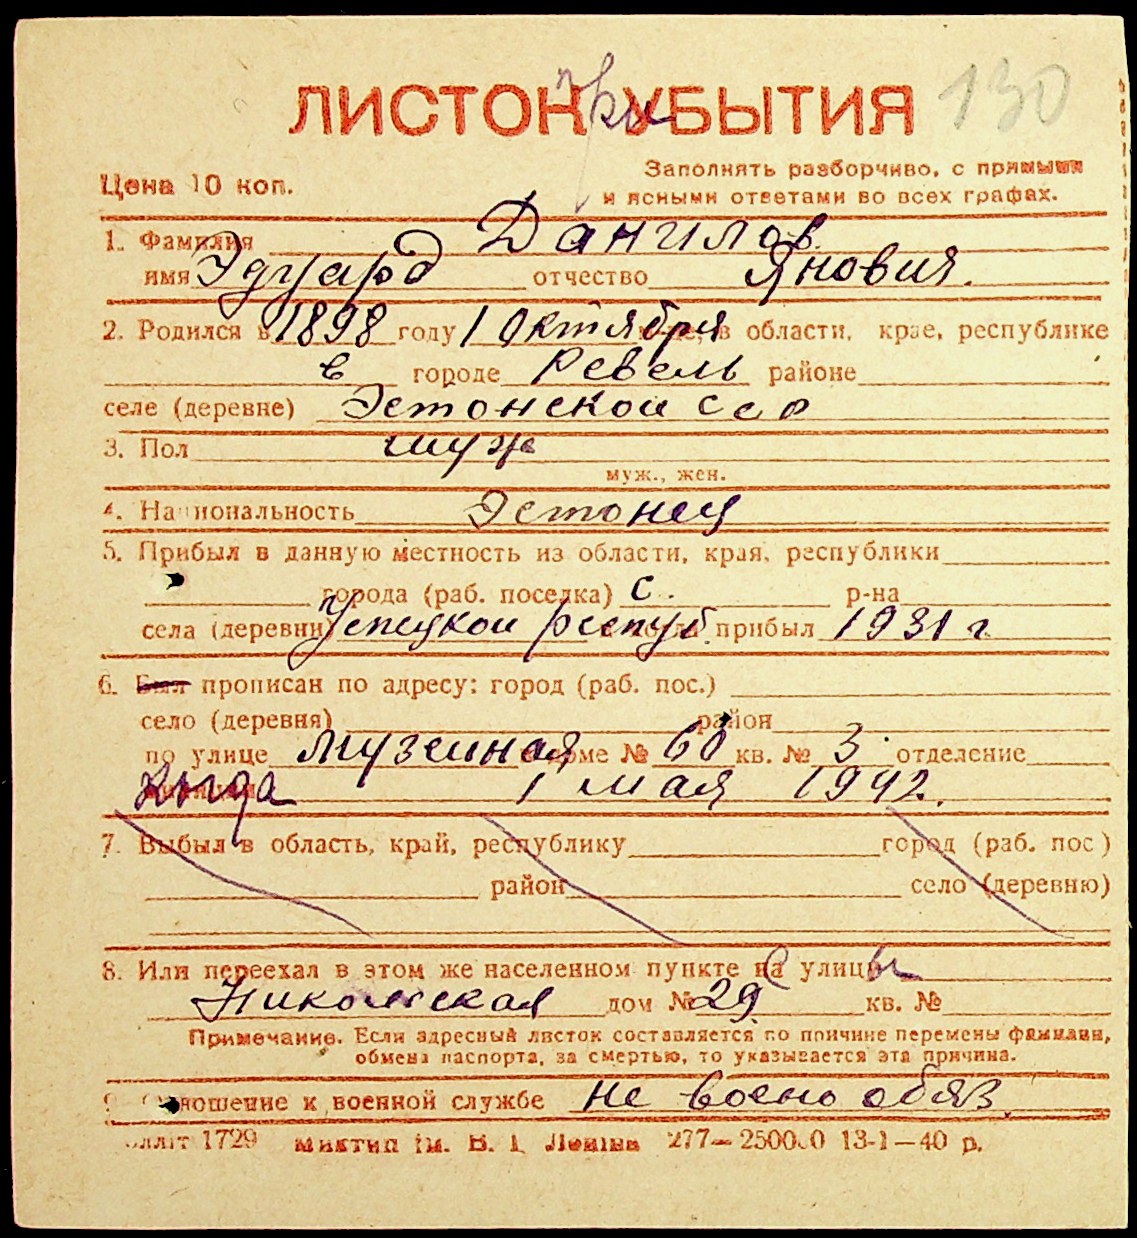 130
ЛИСТОК УБЫТИЯ
при
Цена 10 коп.
Заполнять разборчиво, с прямыми
и ясными ответами во всех графах.
1. Фамилия Данилов
имя Эдуард отчество Янович.
2. Родился в 1898 году 1 Октября в области, крае, республике
в городе Ревель районе
селе (деревне) Эстонской сср
3. Пол муж
муж., жен.
4. Национальность Эстонец
5. Прибыл в данную местность из области, края, республики
города (раб. поселка) с. р-на
села (деревни) респуб. прибыл 1931 г.
6. Был прописан по адресу: город (раб. пос.)
село (деревня) район
по улице Музейная доме № 60 кв. № 3. отделение
Когда 1 мая 1942.
7. Выбыл в область, край, республику город (раб. пос.)
район село (деревню)
8. Или переехал в этом же населенном пункте на с улицы
Никольская дом № 29 кв. №
Примечание. Если адресный листок составляется по причине перемены фамилии,
обмена паспорта, за смертью, то указывается эта причина.
9. Отношение к военной службе не воено обяз.
1729 Миктип ім. В. І. Леніна 277—25000 13-1—40 р.